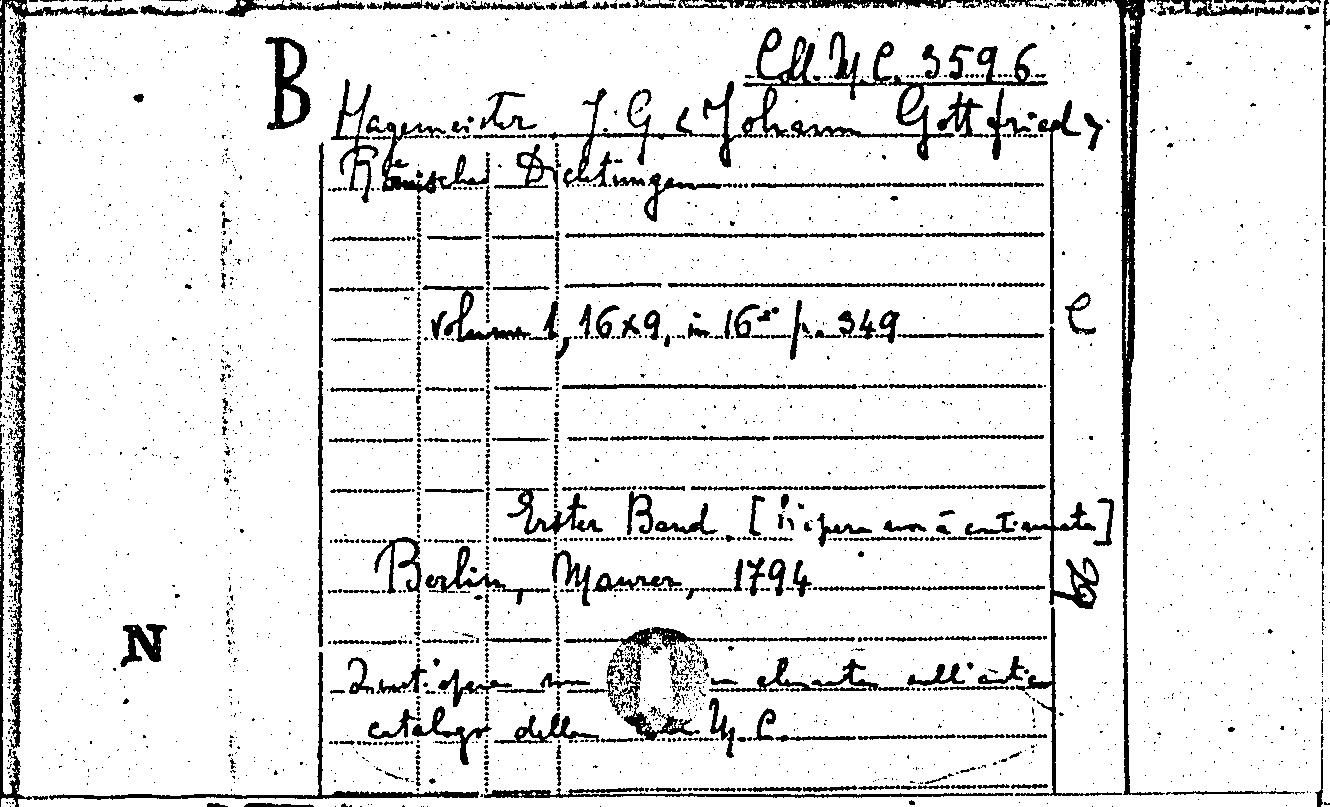 B
Coll. M. C. 3596
Hagemeister J. G. <Johann Gottfried>
Römische Dichtungen
volume 1, 16x9, in 16° p. 349
C
Erster Band. [L'opera non è continuata]
Berlin, Maurer, 1794
N
Quest'opera non elencata nell'antico
catalogo della Coll. M. C.